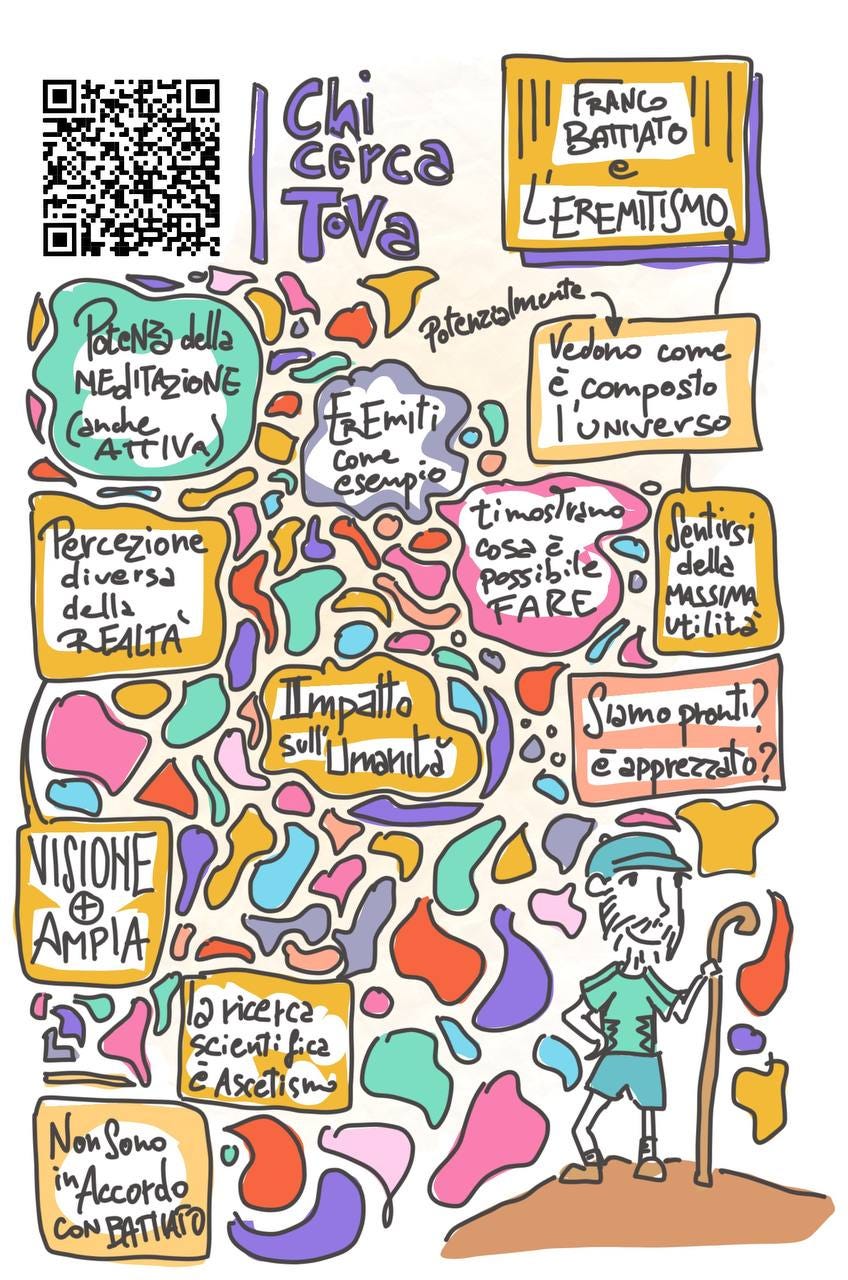 Chi
cerca
Tova
FRANCO
BATTIATO
e
L'EREMITISMO
Potenza della
MEDITAZIONE
(anche
ATTIVA)
Potenzialmente
Vedono come
è composto
l'UNIVERSO
EREMITI
come
esempio
timostrano
cosa è
possibile
FARE
Sentirsi
della
MASSIMA
Utilità
Percezione
diversa
della
REALTÀ
Impatto
sull'
Umanità
Siamo pronti?
è apprezzato?
VISIONE
+
AMPIA
la ricerca
scientifica
è Ascetismo
Non Sono
in Accordo
CON BATTIATO